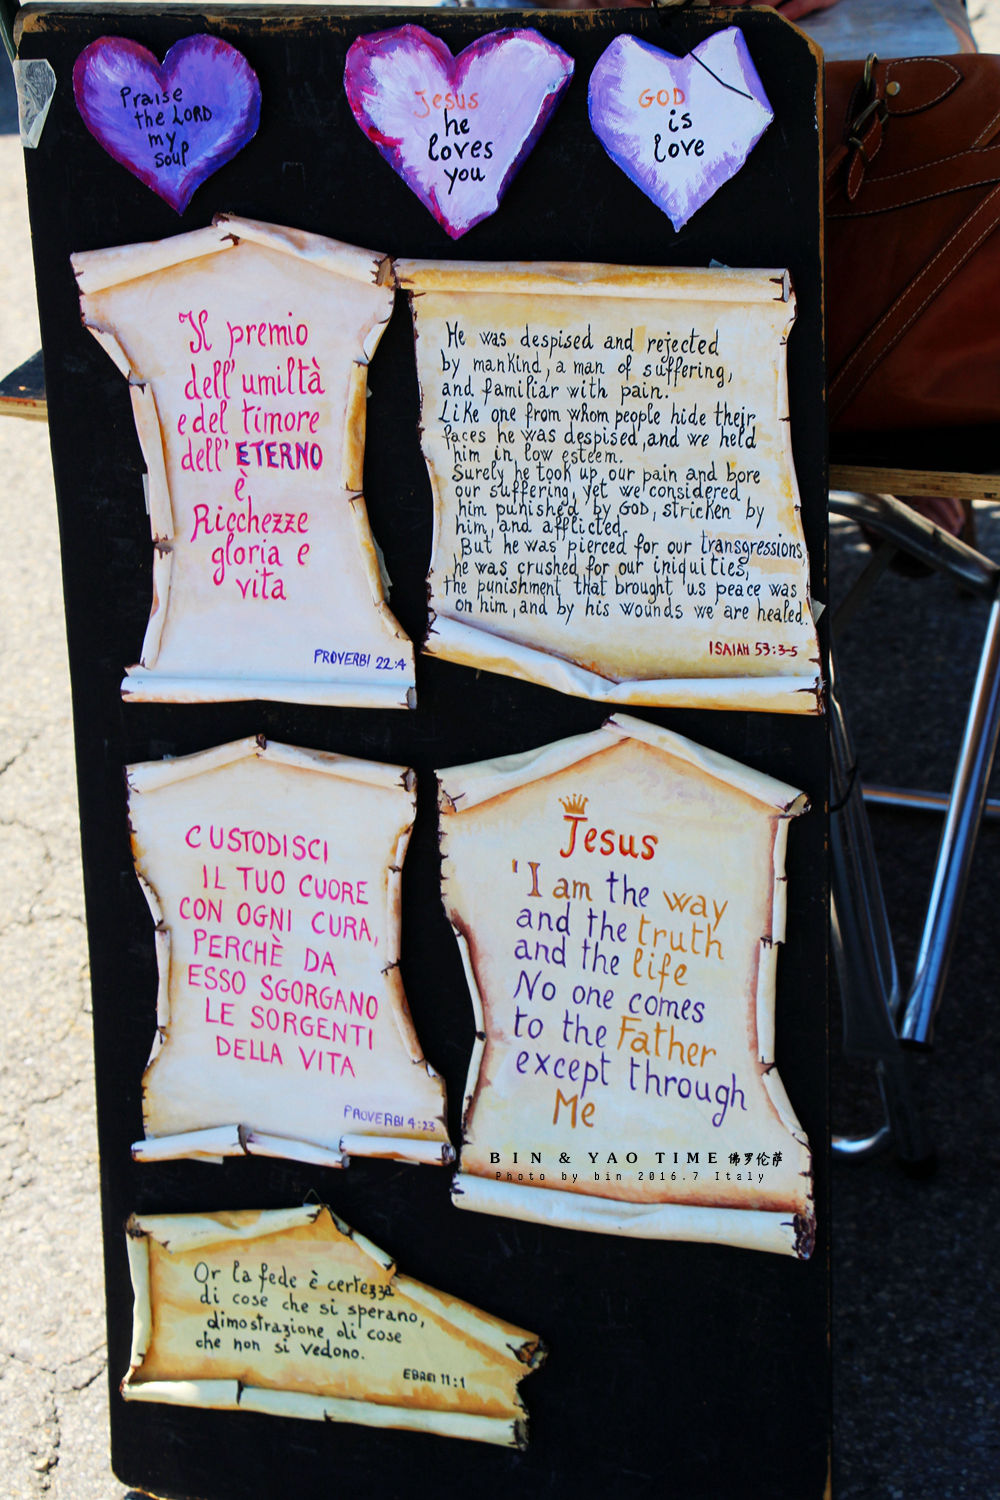 Praise
the LORD
my
soul
Jesus
he
loves
you
GOD
is
love
Il premio
dell'umiltà
e del timore
dell'ETERNO
è
Ricchezze
gloria e
vita
PROVERBI 22:4
He was despised and rejected
by mankind, a man of suffering,
and familiar with pain.
Like one from whom people hide their
faces he was despised, and we held
him in low esteem.
Surely he took up our pain and bore
our suffering, yet we considered
him punished by GOD, stricken by
him, and afflicted.
But he was pierced for our transgressions,
he was crushed for our iniquities,
the punishment that brought us peace was
on him, and by his wounds we are healed.
ISAIAH 53:3-5
CUSTODISCI
IL TUO CUORE
CON OGNI CURA,
PERCHÈ DA
ESSO SGORGANO
LE SORGENTI
DELLA VITA
PROVERBI 4:23
Jesus
'I am the way
and the truth
and the life
No one comes
to the Father
except through
Me
BIN & YAO TIME 佛罗伦萨
Photo by bin 2016.7 Italy
Or la fede è certezza
di cose che si sperano,
dimostrazione di cose
che non si vedono.
EBREI 11:1